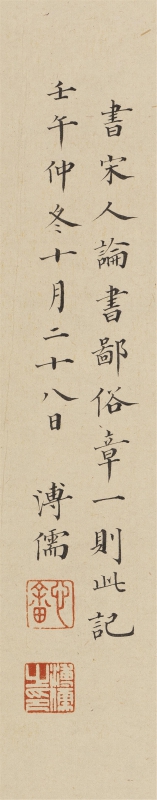 書宋人論書鄙俗章一則此記
壬午仲冬十月二十八日 溥儒
心畬
溥儒之印